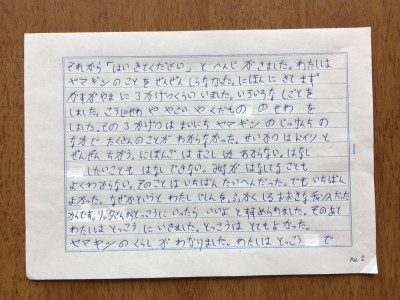 それから「はい きてください」と へんじ が きました。わたしは
ヤマギシ の こと を ぜんぜん しらなかった。にほんに きて まず
かすがやま に 3かげつくらい いました。いろいろな しごとを
しました。こうしゃ や やさい や くだもの の せわ を
しました。その 3かげつは まいにち ヤマギシ の じっけんちの
なかで たくさんのことが わからなかった。せいかつは ドイツと
ぜんぜん ちがう。にほんごは すこししか わからない。はなし
したいことも はなし できない。みんなが はなしてる ことも
よくわからない。そのことは いちばん たいへんだった。でも いちばん
よかった。なぜかというと わたし じしんを ふかく しる おおきな チャンスだった
からです。 とっこうに いったら いいよ と すすめられました。そのあと
わたしは とっこう に いきました。とっこうは とても よかった。
ヤマギシ の くらし が わかりました。わたしは とっこう で
No.2